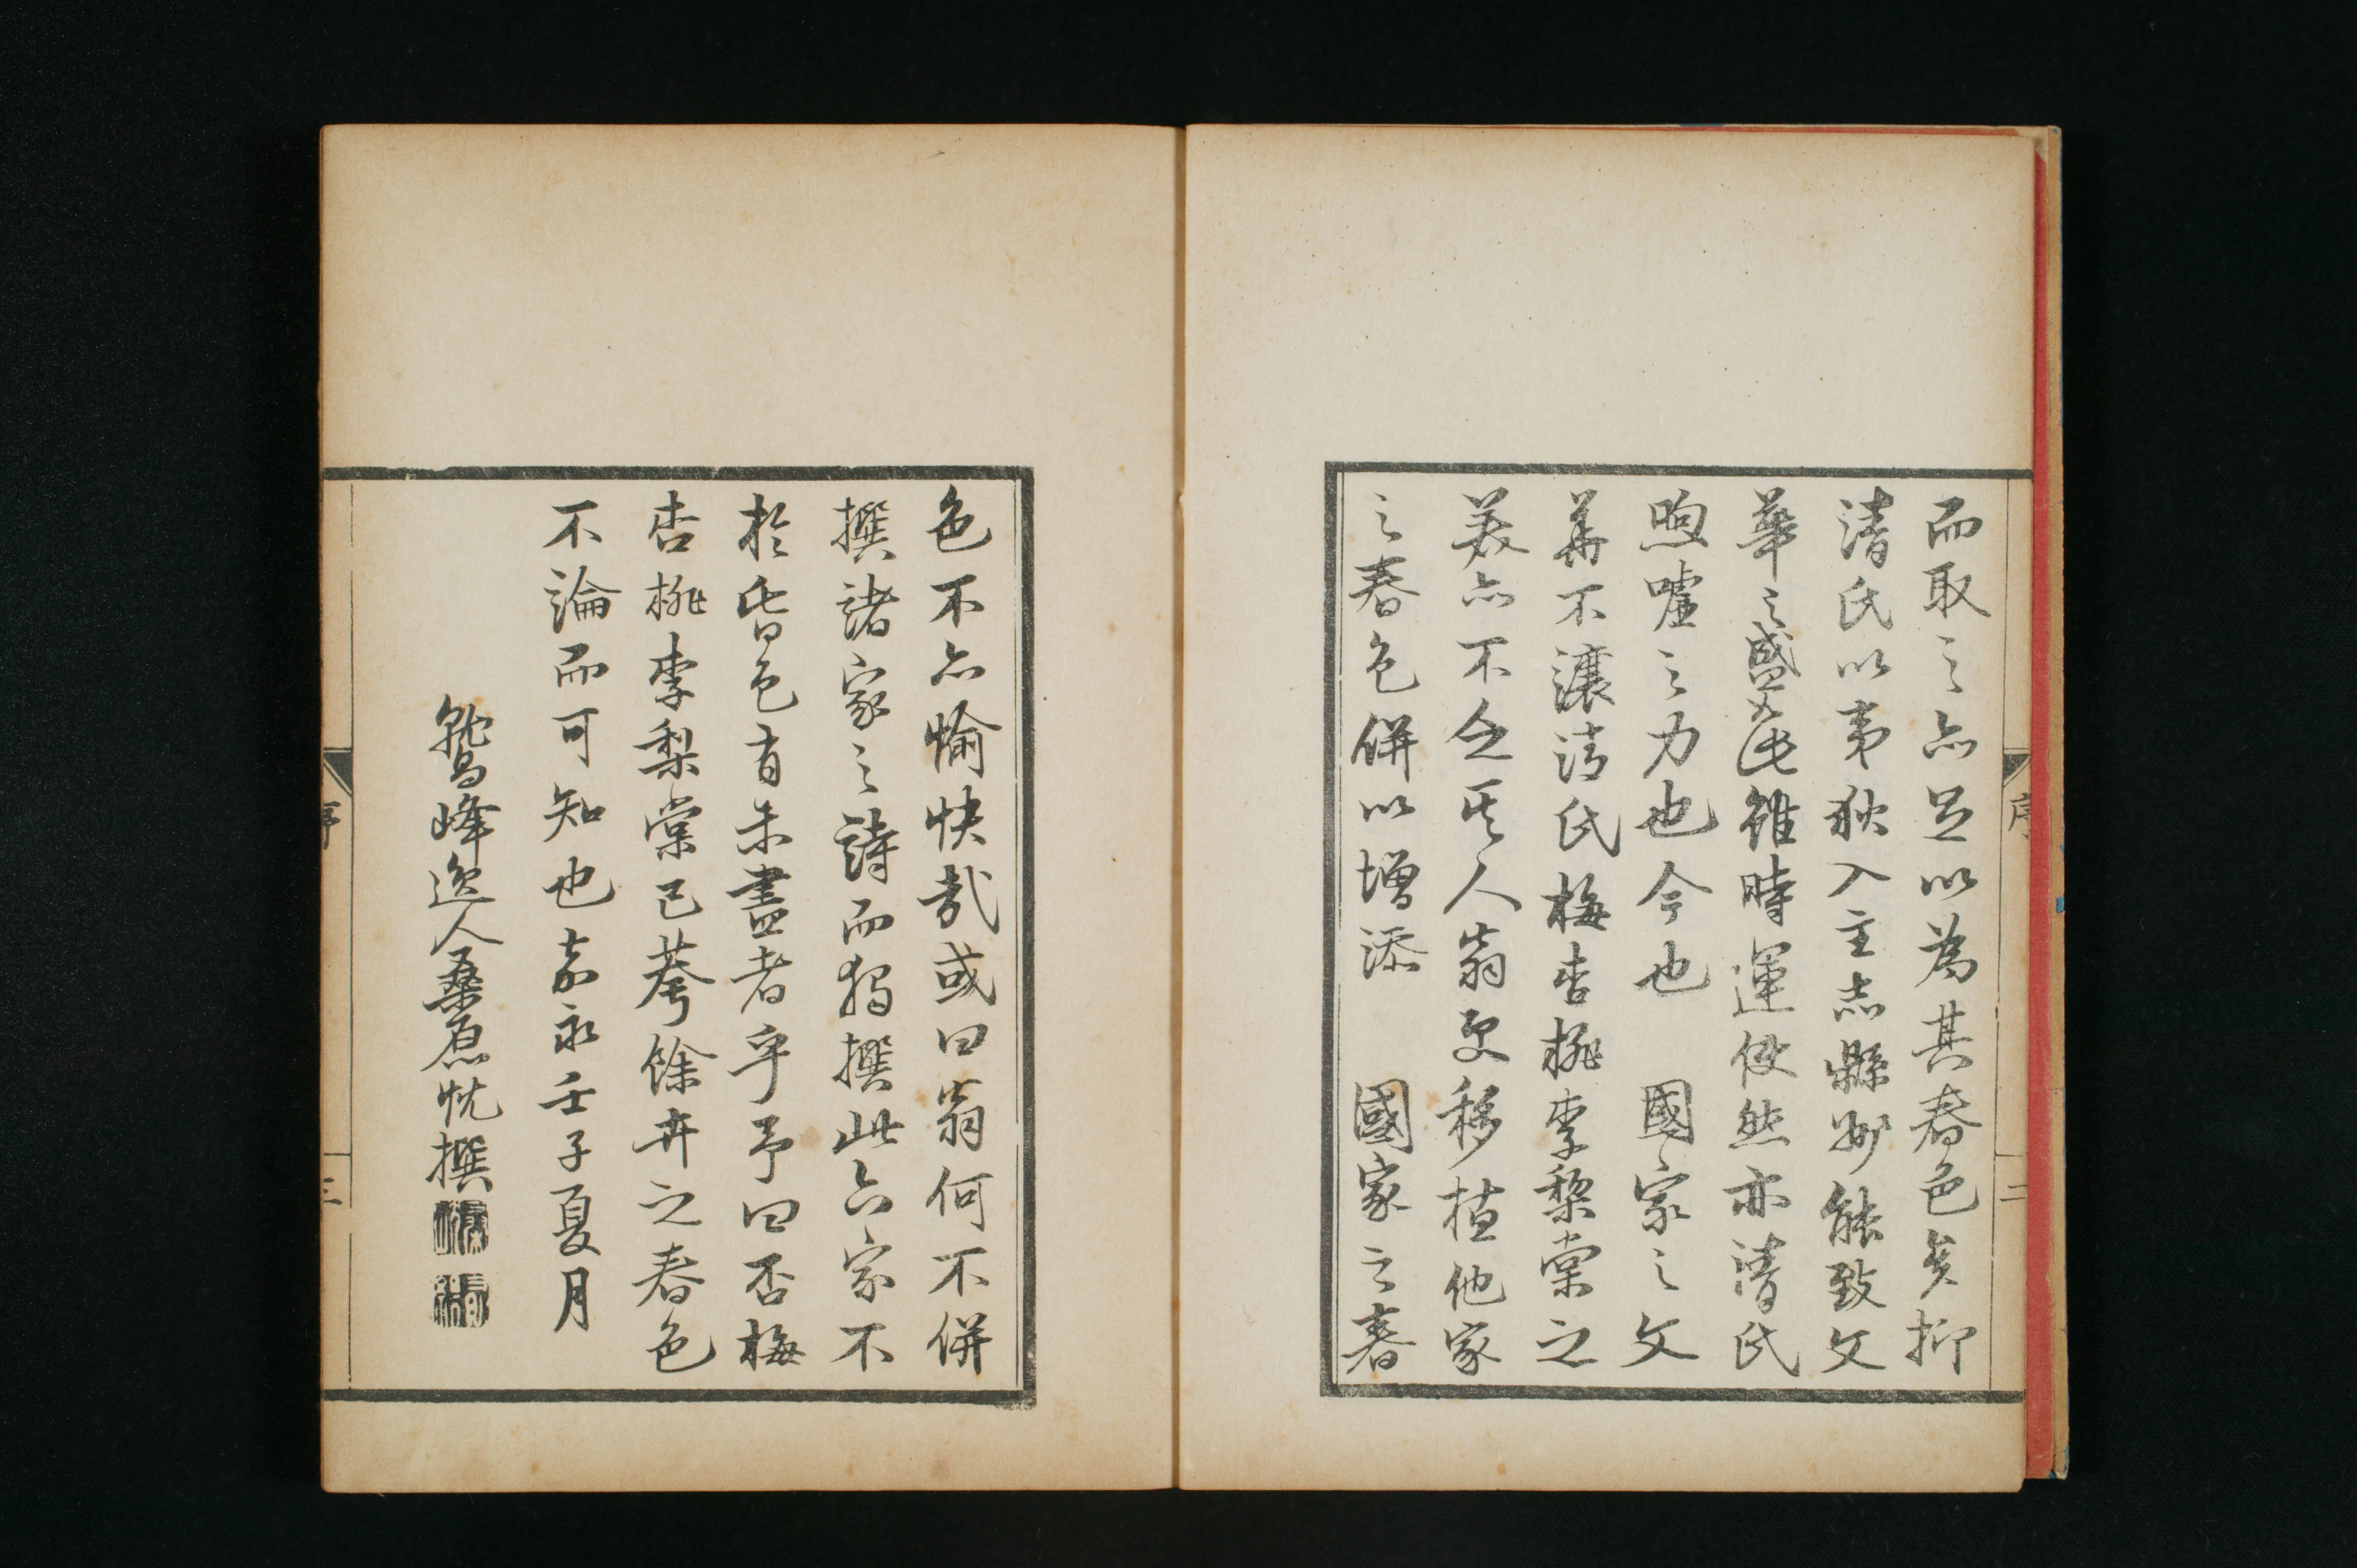 而取之亦足以為其春色矣抑
清氏以夷狄入主赤縣妙能致文
華之盛如此雖時運使然亦清氏
煦嘘之力也今也　國家之文
華不讓清氏梅杏桃李梨棠之
美亦不乏其人翁更移植他家
之春色併以增添　國家之春
色不亦愉快哉或曰翁何不併
撰諸家之詩而獨撰此六家不
於皆色有未盡者乎予曰否梅
杏桃李梨棠已萼餘卉之春色
不論而可知也嘉永壬子夏月
鷲峰逸人桑原忱撰
序
二
序
三